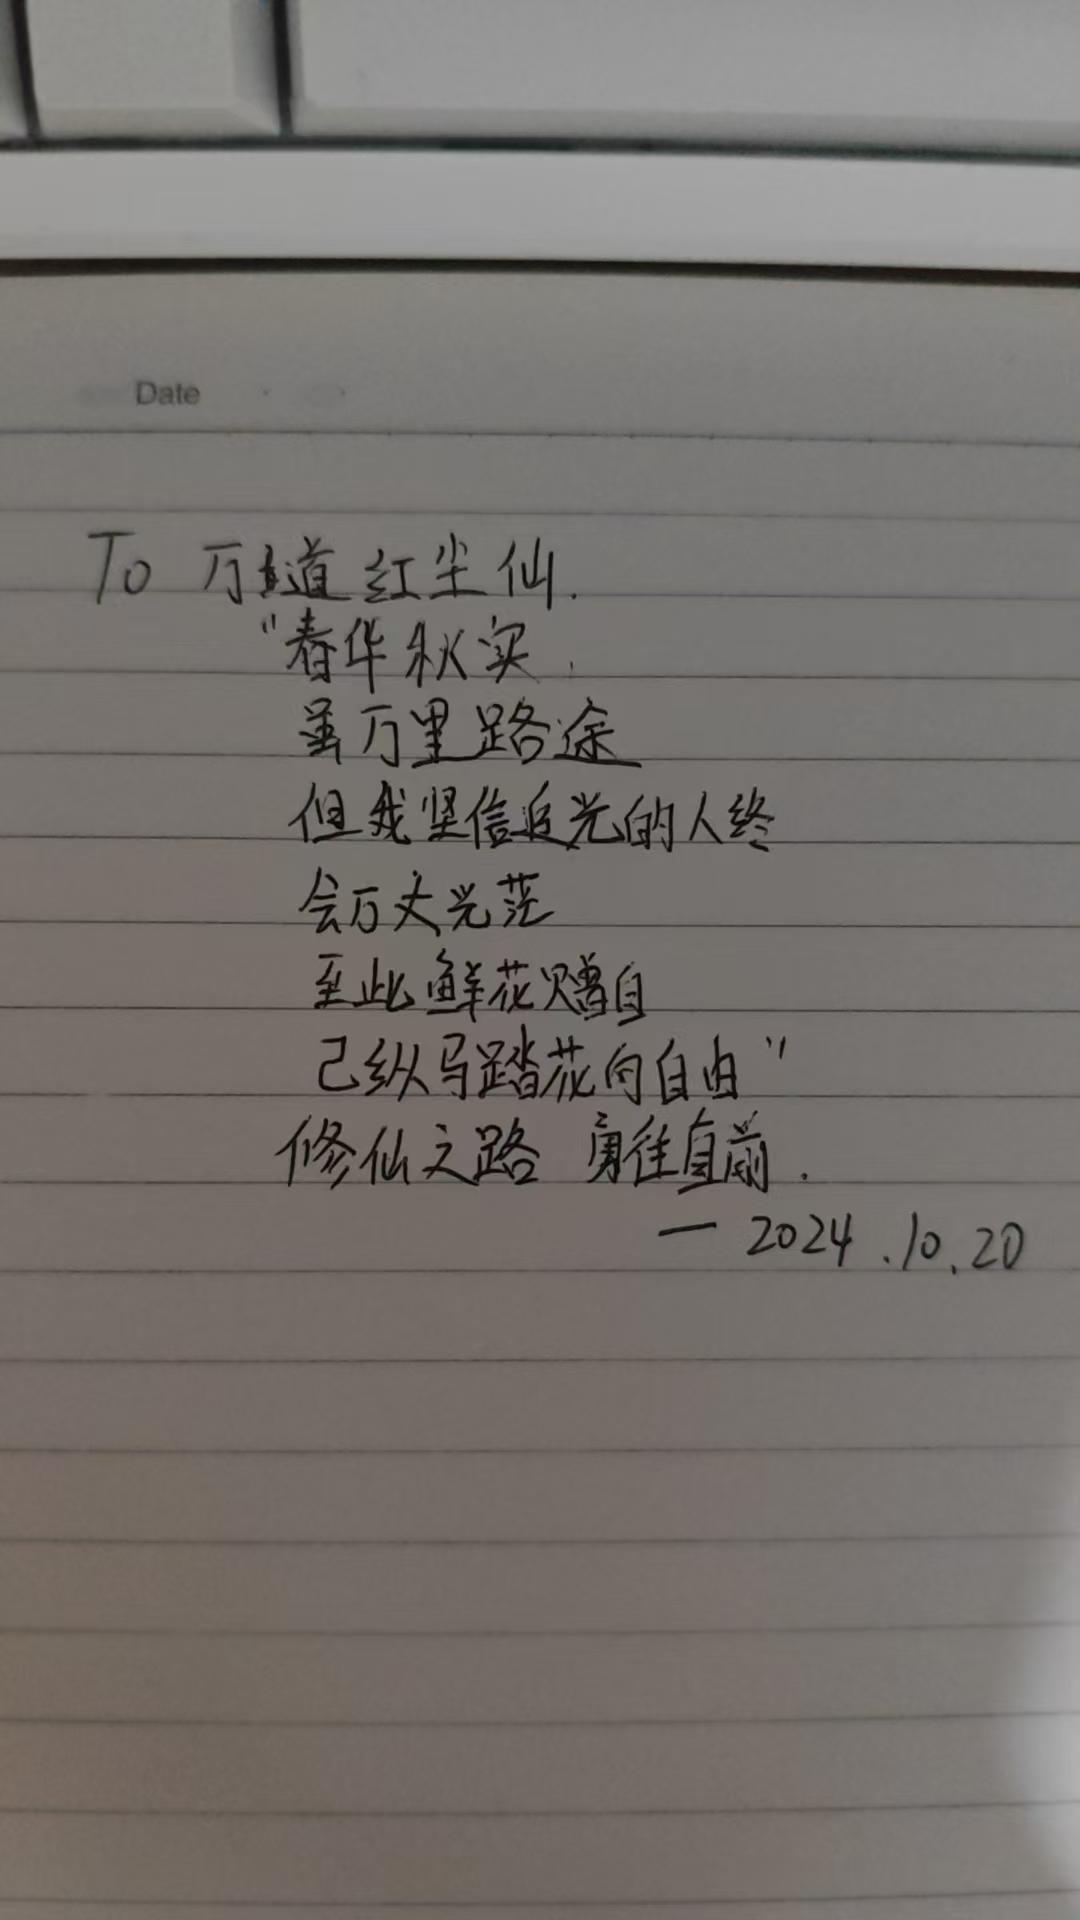 Date
To 万道红尘仙.
"春华秋实,
虽万里路途
但我坚信追光的人终
会万丈光茫
至此鲜花赠自
己纵马踏花向自由"
修仙之路 勇往直前.
— 2024.10.20